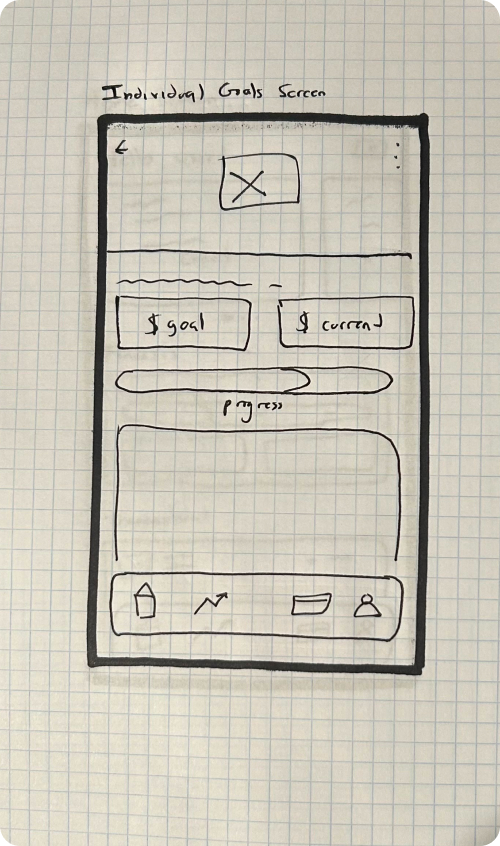 Individual Goals Screen
$ goal
$ current
progress